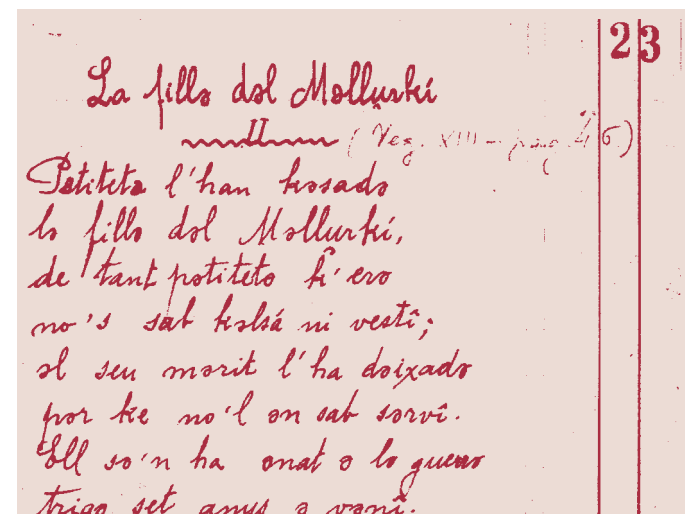 23
La fillə dəl Məllurkí
II (Veg. XIII - pag.
Pətitetə l'han kəsadə
lə fillə dəl Məllurkí,
de tant pətitetə k'erə
no's sab kəlsá ni vestî;
əl seu mərit l'ha dəixadə
pər ke no'l ən sab sərvî.
Ell sə'n ha ənat ə lə guerrə
trigə set anys ə vənî.